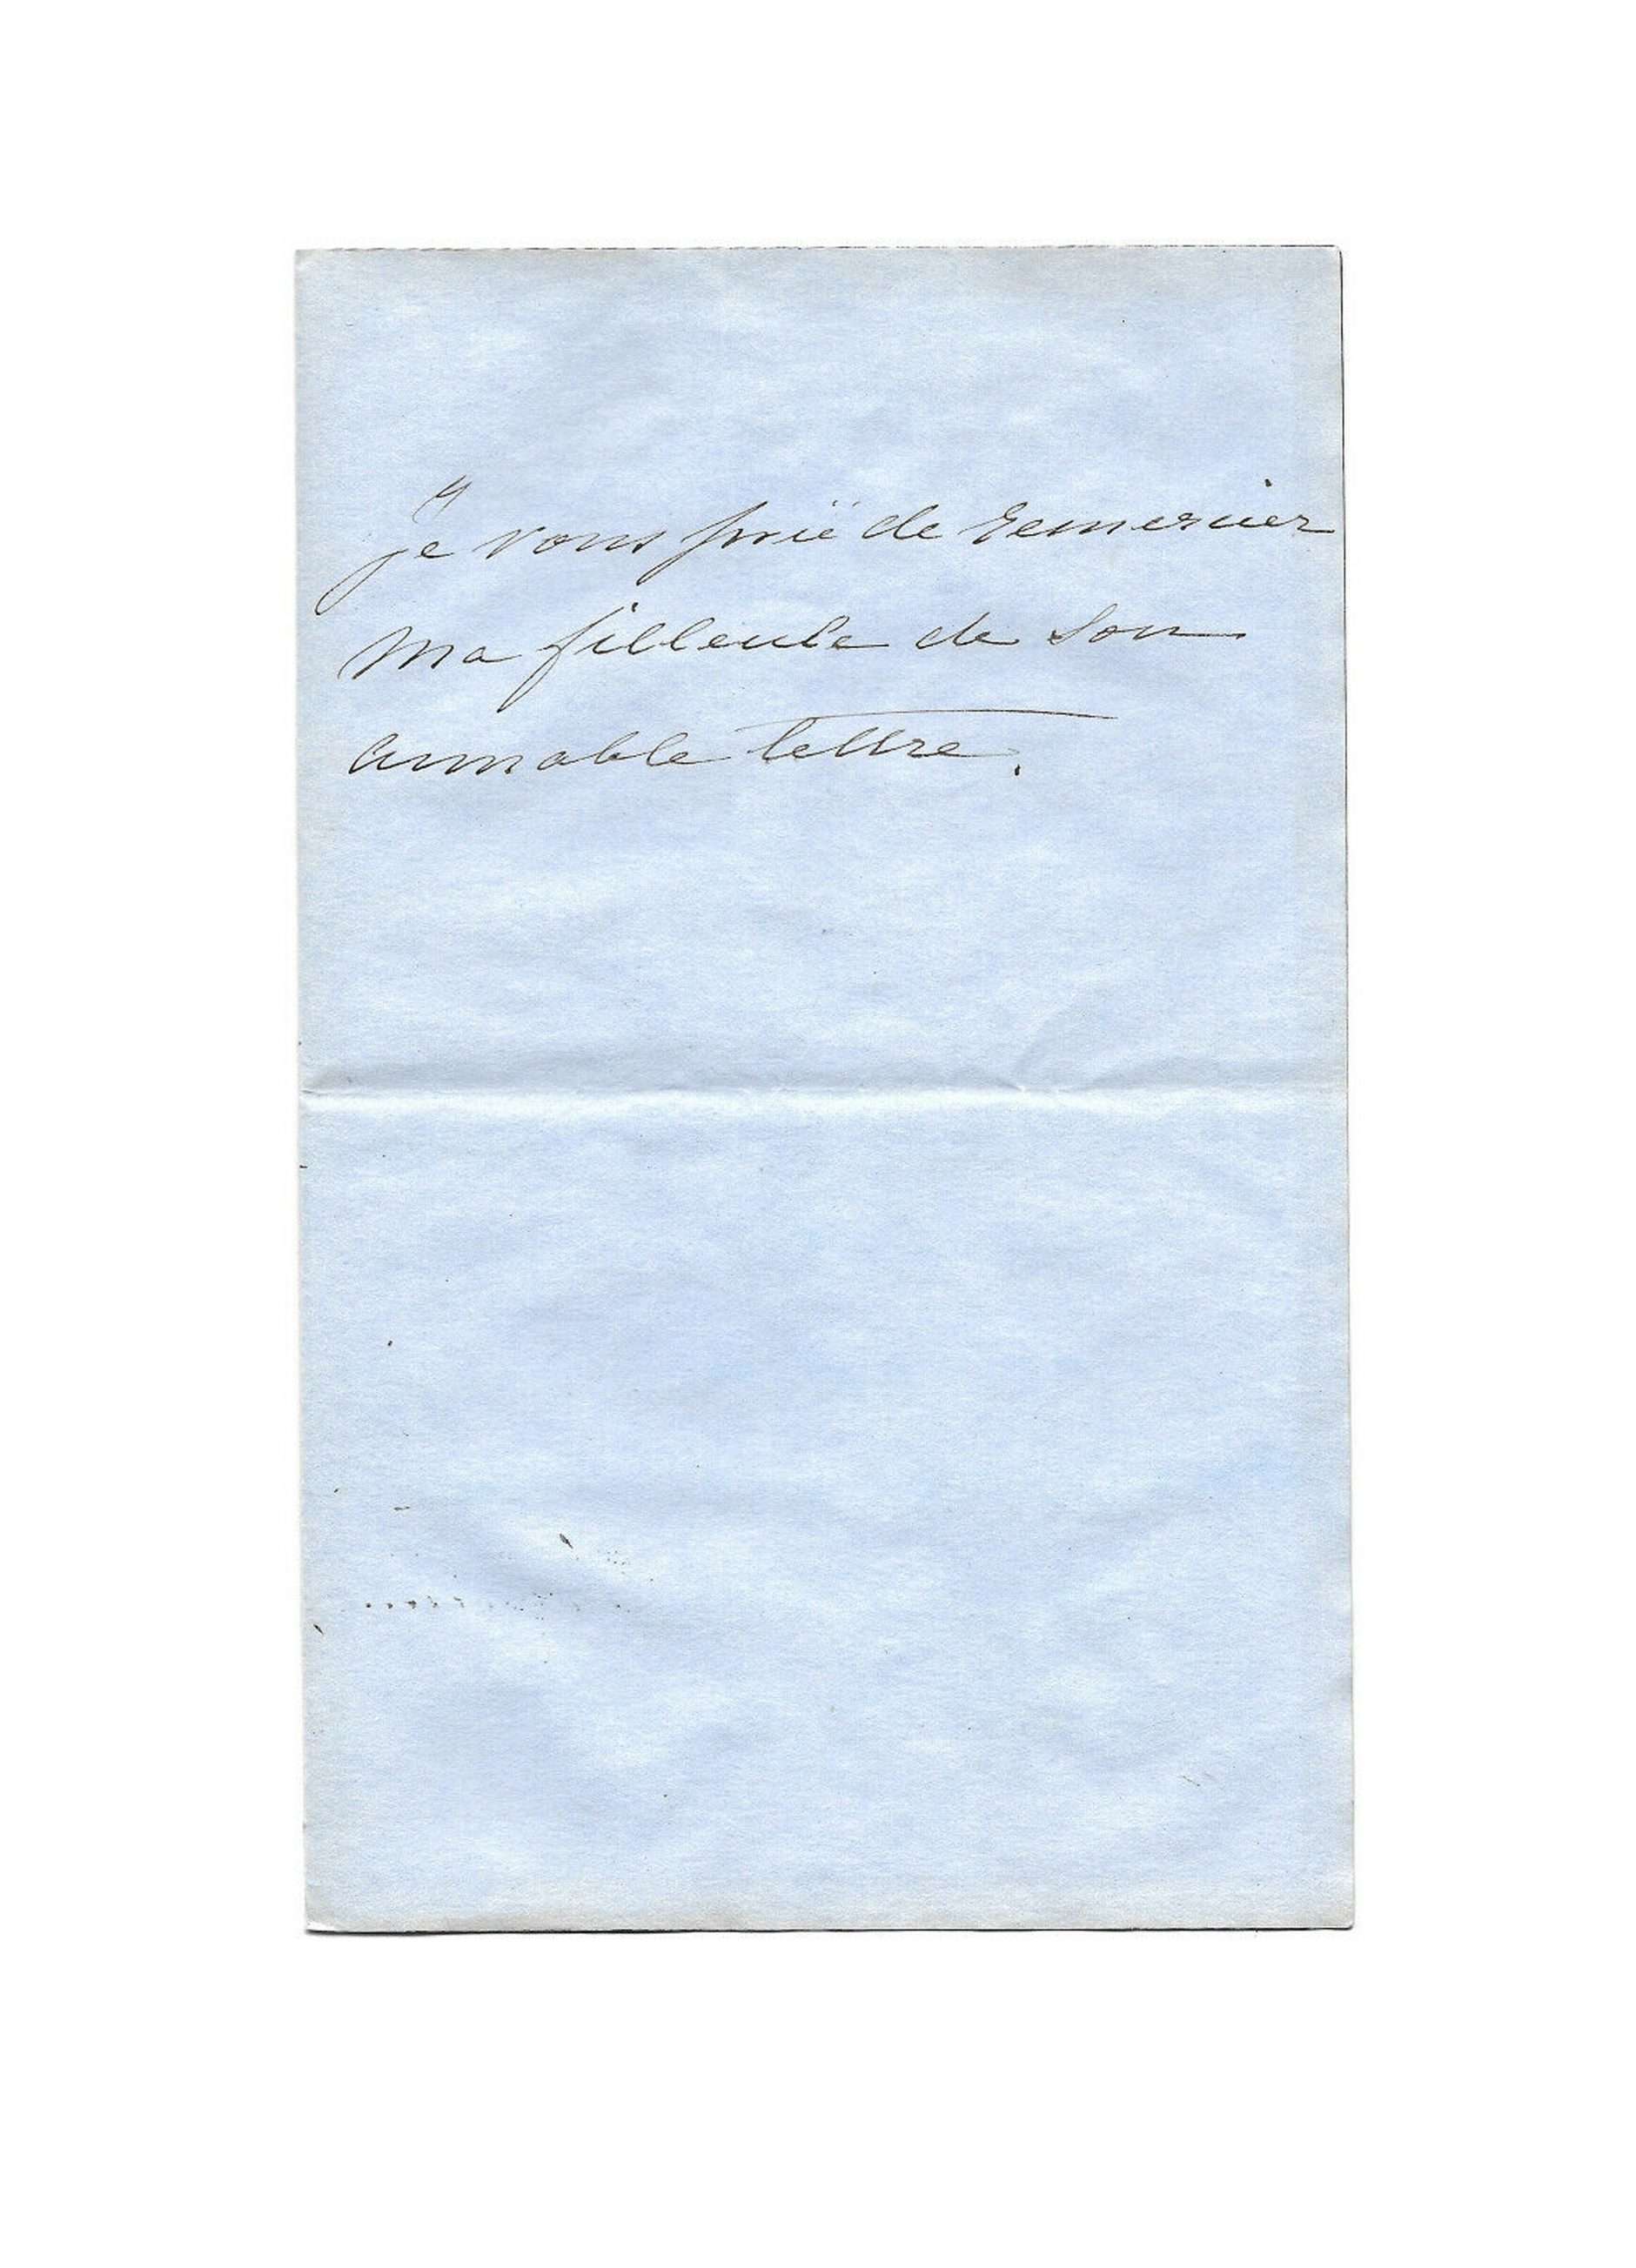 je vous prië de remercier
ma filleule de son
aimable lettre.